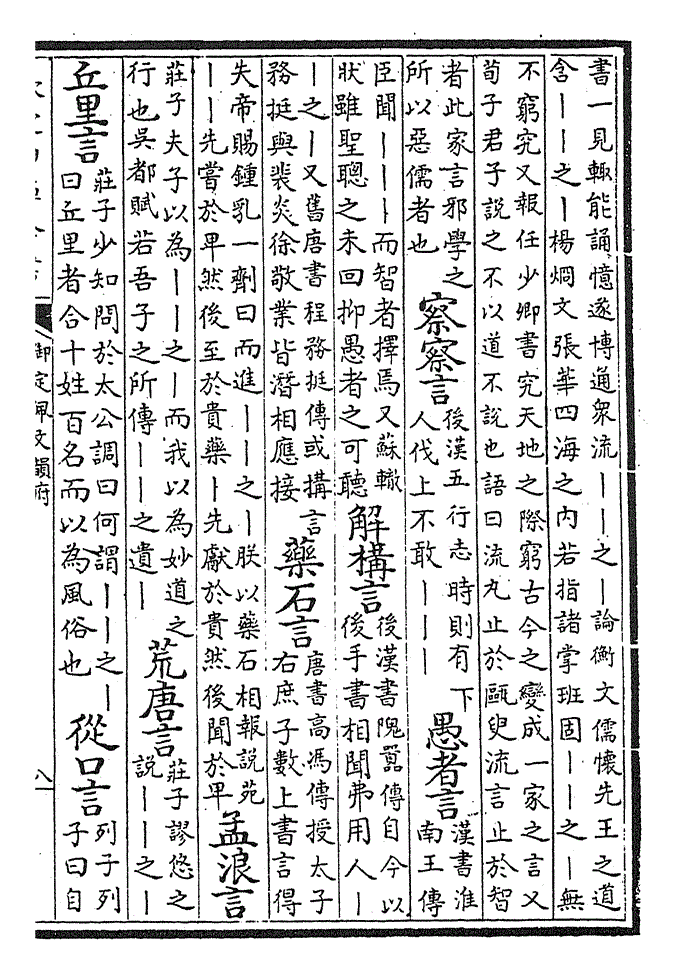 書一見輙能誦憶遂博通衆流——之—論衡文儒懷先王之道
含——之—楊烱文張華四海之內若指諸掌班固——之—無
不窮究又報任少卿書究天地之際窮古今之變成一家之言又
荀子君子說之不以道不說也語曰流丸止於甌臾流言止於智
者此家言邪學之
所以惡儒者也
察察言
後漢五行志時則有下
人伐上不敢———
愚者言
漢書淮
南王傳
臣聞———而智者擇焉又蘇轍
狀雖聖聰之未回抑愚者之可聽
解構言
後漢書隗囂傳自今以
後手書相聞弗用人—
—之—又舊唐書程務挺傳或搆言
務挺與裴炎徐敬業皆潛相應接
藥石言
唐書高馮傳授太子
右庶子數上書言得
失帝賜鍾乳一劑曰而進——之—朕以藥石相報說苑
——先嘗於卑然後至於貴藥—先獻於貴然後聞於卑
孟浪言
莊子夫子以為——之—而我以為妙道之
行也吳都賦若吾子之所傳——之遺—
荒唐言
莊子謬悠之
說——之—
丘里言
莊子少知問於太公調曰何謂——之—
曰丘里者合十姓百名而以為風俗也
從口言
列子列
子曰自
御定佩文韻府
八